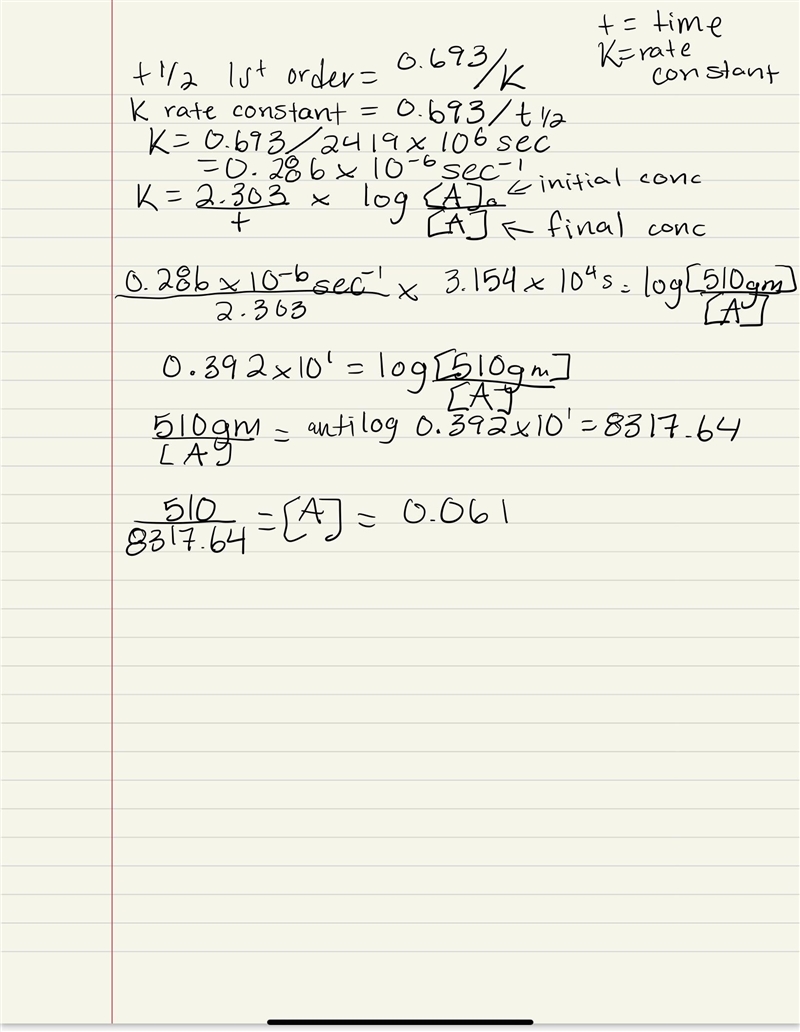 t = time
K=rate
constant
t 1/2 1st order = 0.693/K
K rate constant = 0.693/t 1/2
K = 0.693/2419 x 10⁶ sec
= 0.286 x 10⁻⁶ sec⁻¹
K = 2.303/t x log [A]₀/[A] ← initial conc
← final conc
0.286 x 10⁻⁶ sec⁻¹/2.303 x 3.154 x 10⁴ s = log [510gm]/[A]
0.392 x 10¹ = log [510gm]/[A]
510gm/[A] = antilog 0.392 x 10¹ = 8317.64
510/8317.64 = [A] = 0.061